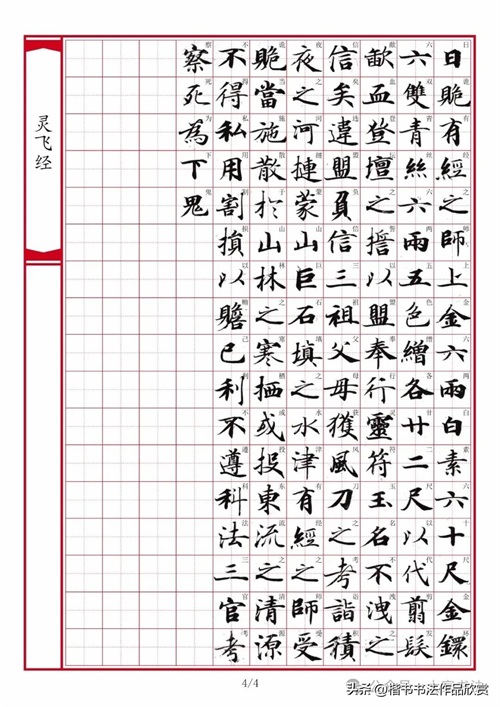 日䞈有經之師上金六兩白素六十尺金鐶
六雙青絲六兩五色繒各廿二尺以代翦髮
歃血登壇之擔以盟奉行靈符玉名不洩之
信矣違盟負信三祖父母獲風刀之考詣積
夜之河摙蒙山巨石填之水津有經之師受
䞈當施散於山林之寒栖或投東流之清源
不得私用割損以贍己利不遵科法三官考
察死為下鬼
灵飞经
4/4
头条 @楷书书法作品欣赏